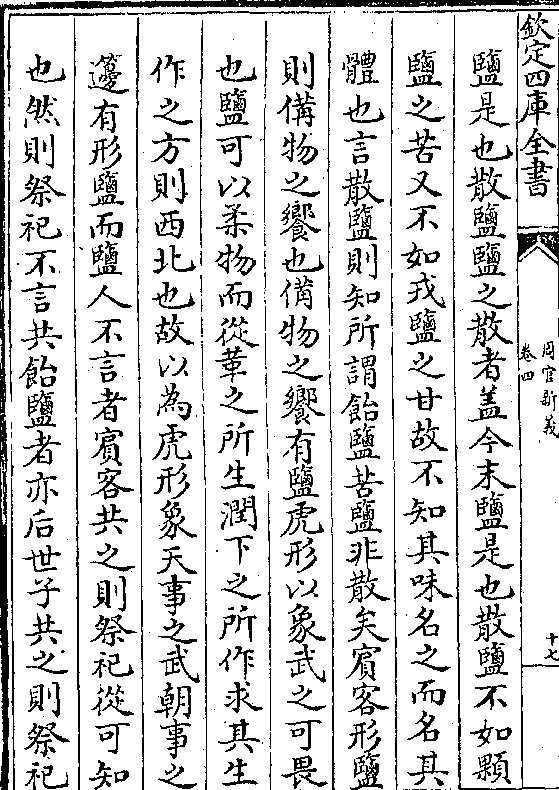 欽定四庫全書
周官新義
卷四
十七
鹽是也散鹽鹽之散者盖今末鹽是也散鹽不如顆
鹽之苦又不如戎鹽之甘故不知其味名之而名其
體也言散鹽則知所謂飴鹽苦鹽非散矣賓客形鹽
則備物之饗也備物之饗有鹽虎形以象武之可畏
也鹽可以柔物而從革之所生潤下之所作求其生
作之方則西北也故以為虎形象天事之武朝事之
籩有形鹽而鹽人不言者賓客共之則祭祀從可知
也然則祭祀不言共飴鹽者亦后世子共之則祭祀